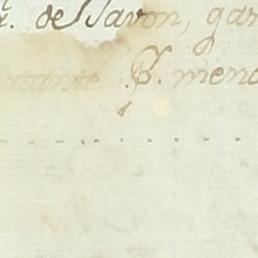 de Savon, gar
rtante B. meno